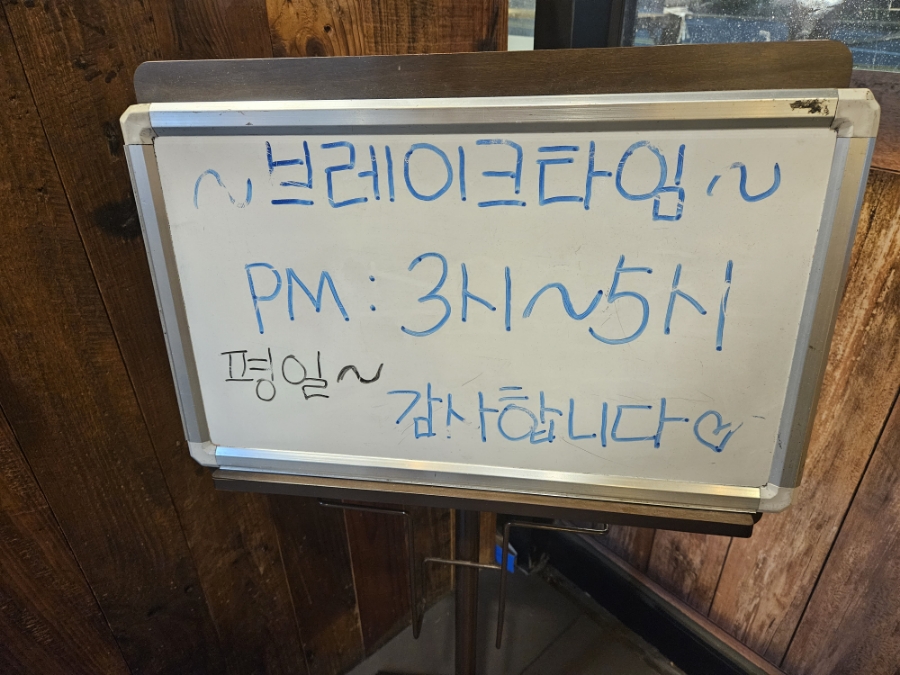 ~브레이크타임~
PM : 3시~5시
평일~
감사합니다♡